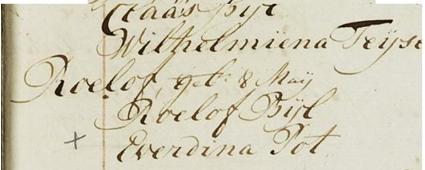 Claäs Bÿl
Wilhelmiena Teÿse
Roelof, geb: 8 Maÿ
Roelof Bÿl
Everdina Pot